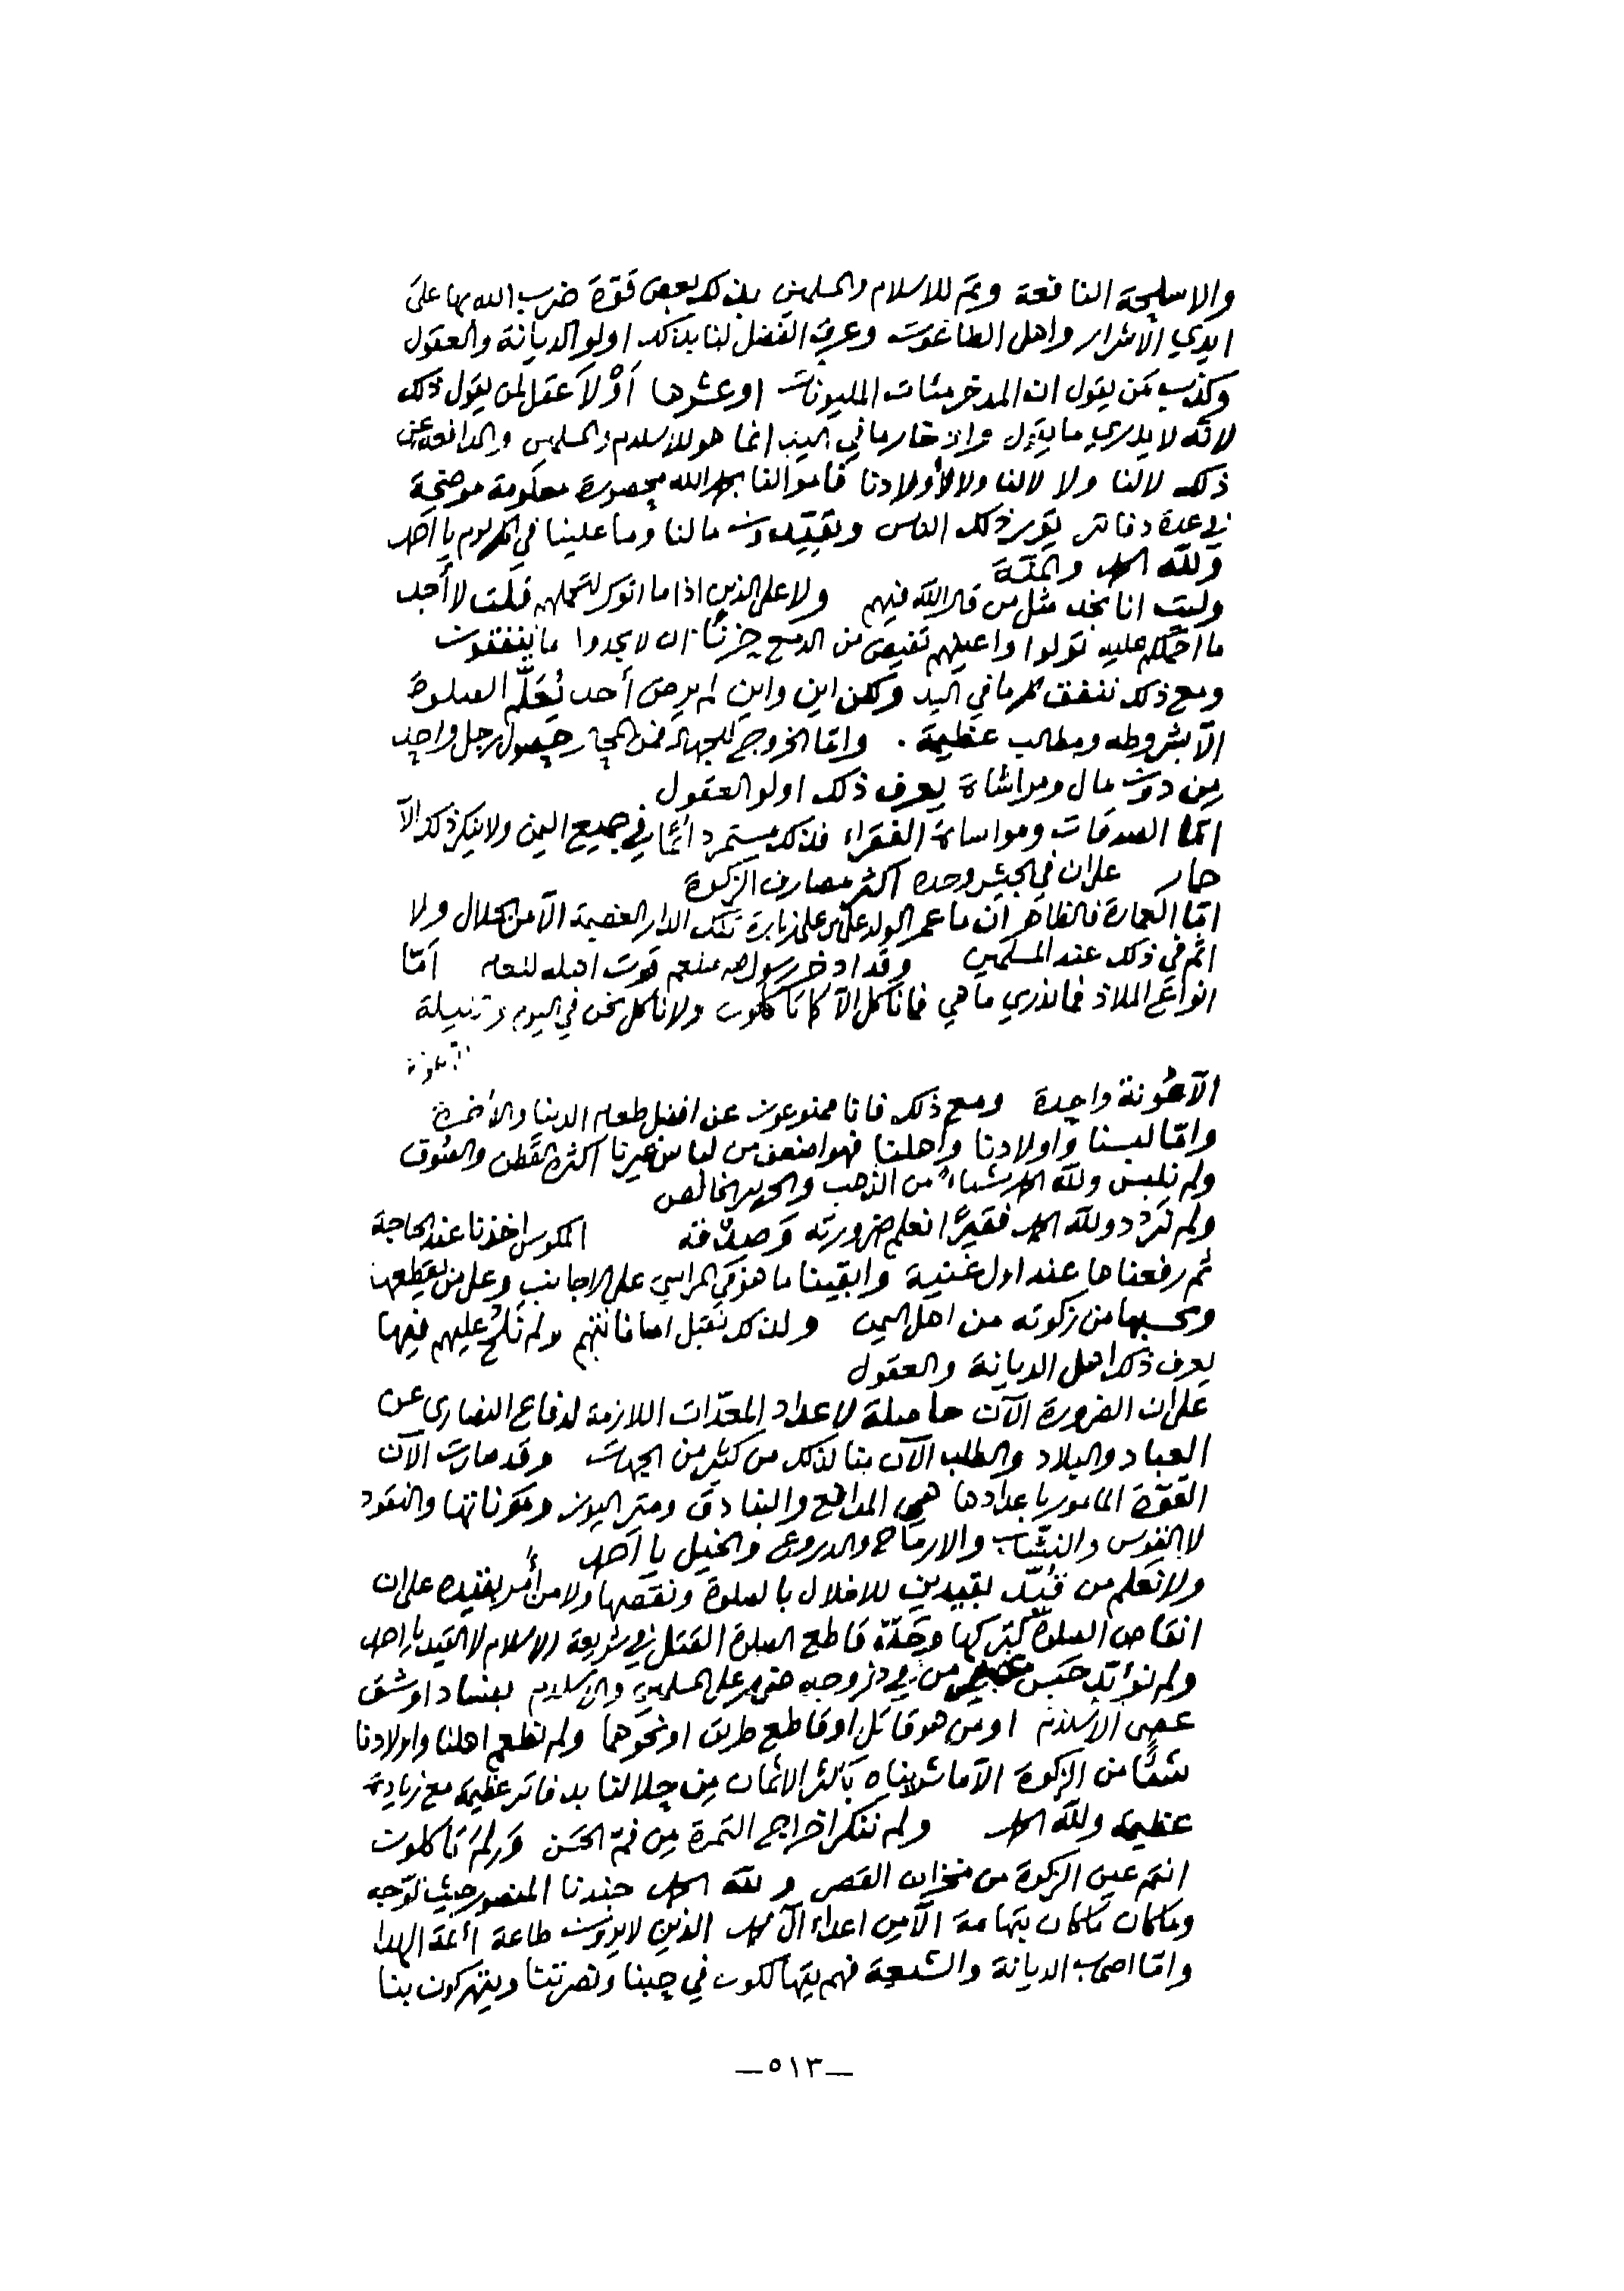 والاسلحة النافعة وتم للاسلام والمسلمين بذلك بعض قوة ضرب الله بها على
ايدي الاشرار واهل الطاغوت وعرف الفضل لنا بذلك اولو الديانة والعقول
وكذب من يقول ان المدخر مئات المليونات او عشرها اذ لا عقل لمن يقول ذلك
لانه لا يدري ما يقول وادخار ما في اليد انما هو للاسلام والمسلمين والمدافعة عن
ذلك لا لنا ولا لآلنا ولا لأولادنا فاموالنا بحمد الله محصورة معلومة موضحة
في عدة دفاتر يحرر ذلك الناس ويقيدون ما لنا وما علينا في كل يوم يا احمد
ولله الحمد والمنة
وليت انا نجد مثل من قال الله فيهم ولا على الذين اذا ما اتوك لتحملهم قلت لا أجد
ما احملكم عليه تولوا واعينهم تفيض من الدمع حزنًا ان لا يجدوا ما ينفقون
ومع ذلك ننفق كل ما في اليد ولكن اين واين لم يرض أحد يُعَلّم الصلوة
الا بشروطه ومطالب عظيمة . واما الخروج للجهاد فمن المحال حصول رجل واحد
من دون مال ومراشاة يعرف ذلك اولو العقول
اما الصدقات ومواساة الفقراء فذلك مستمر دائمًا في جميع اليمن ولا ينكر ذلك الا
حمار على ان في الجيش وحده اكثر مصارف الزكوة
اما العمارة فالظاهر ان ما عمر الولد علي بن علي زبارة تلك الدار العضيمة الا من الحلال ولا
اثم في ذلك عند المسلمين وقد ادخر رسول الله صلعم قوت اهله لعام أمّا
انواع الملاذ فما ندري ما هي فما نأكل الا كما تأكلون ولا نأكل نحن في اليوم وليلة
الا هونة واحدة ومع ذلك فانا ممنوعون عن افضل طعام الدنيا والأخرة
واما لبسنا واولادنا وأهلنا فهو اضعف من لباس غيرنا اكثره القطن والصوف
ولم نلبس ولله الحمد شيئاً من الذهب والحرير الخالص
ولم نرد ولله الحمد فقيرًا نعلم ضرورته وصدقه المكوس اخذنا عند الحاجة
ثم رفعناها عند اول غنية وابقينا ما هو في المراسي على الاجانب وعلى من يقطعها
ويحسبها من زكوته من اهل اليمن ولذلك نقبل اضافاتهم ولم نلح عليهم فيها
يعرف ذلك اهل الديانة والعقول
على ان الضرورة الآن حاصلة لاعداد المعدّات اللازمة لدفاع النصارى عن
العباد والبلاد والطلب الآن بنا لذلك من كثير من الجهات وقد صارت الآن
القوة المامور باعدادها هي المدافع والبنادق ومتر اليوز ومكوناتها والنقود
لا القوس والنشّاب والارماح والدروع والخيل يا احمد
ولا نعلم من قُيّد بقيدين للاخلال بالصلوة ونقصها ولا من أُمر بقيده على ان
انقاص الصلوة كتركها وحدّ قاطع الصلوة القتل في شريعة الاسلام لا القيد يا احمد
ولم نؤبّد حبس من في خروجه ضرر على المسلمين والاسلام بفساد او شق
عصى الاسلام او من هو قاتل او قاطع طريق او نحوهما ولم نطعم اهلنا واولادنا
شيئًا من الزكوة الا ما شريناه بأكثر الاثمان من حلالنا بدفاتر عظيمة مع زيادة
عظيمة ولله الحمد ولم ننكر اخراج التمرة من فم الحسن ولِمَ تأكلون
انتم عين الزكوة من مخزان القصر ولله الحمد جندنا المنصور حيث توجه
وما كان ما كان بتهامة الا من اعداء آل محمد الذين لا يرون طاعة أئمة الهدا
واما اصحاب الديانة والشيعة فهم يتهالكون في حبنا ونصرتنا ويتبركون بنا
—٥١٣—